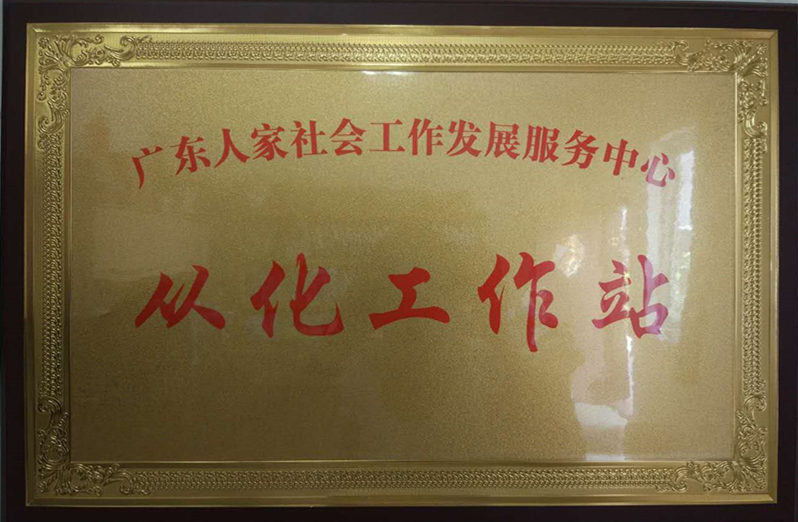 广东人家社会工作发展服务中心
从化工作站